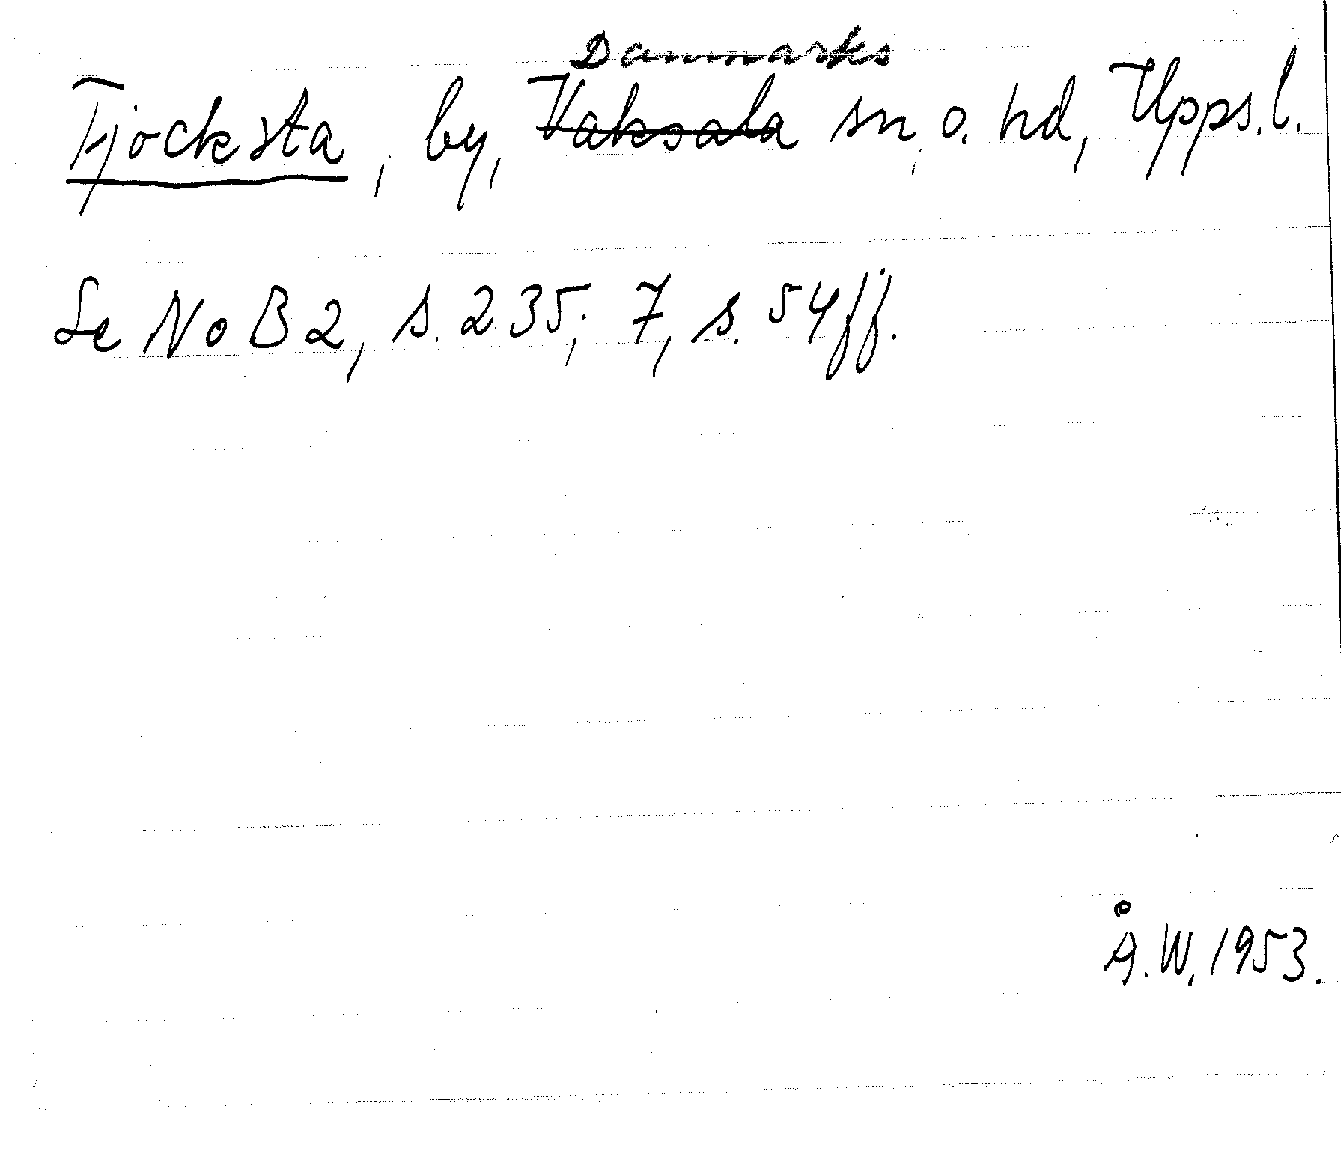 Danmarks
Tjocksta, by, Vaksala sn o. hd, Upps.l.
Se NoB 2, s. 235; 7, s. 54 ff.
Å.W. 1953.